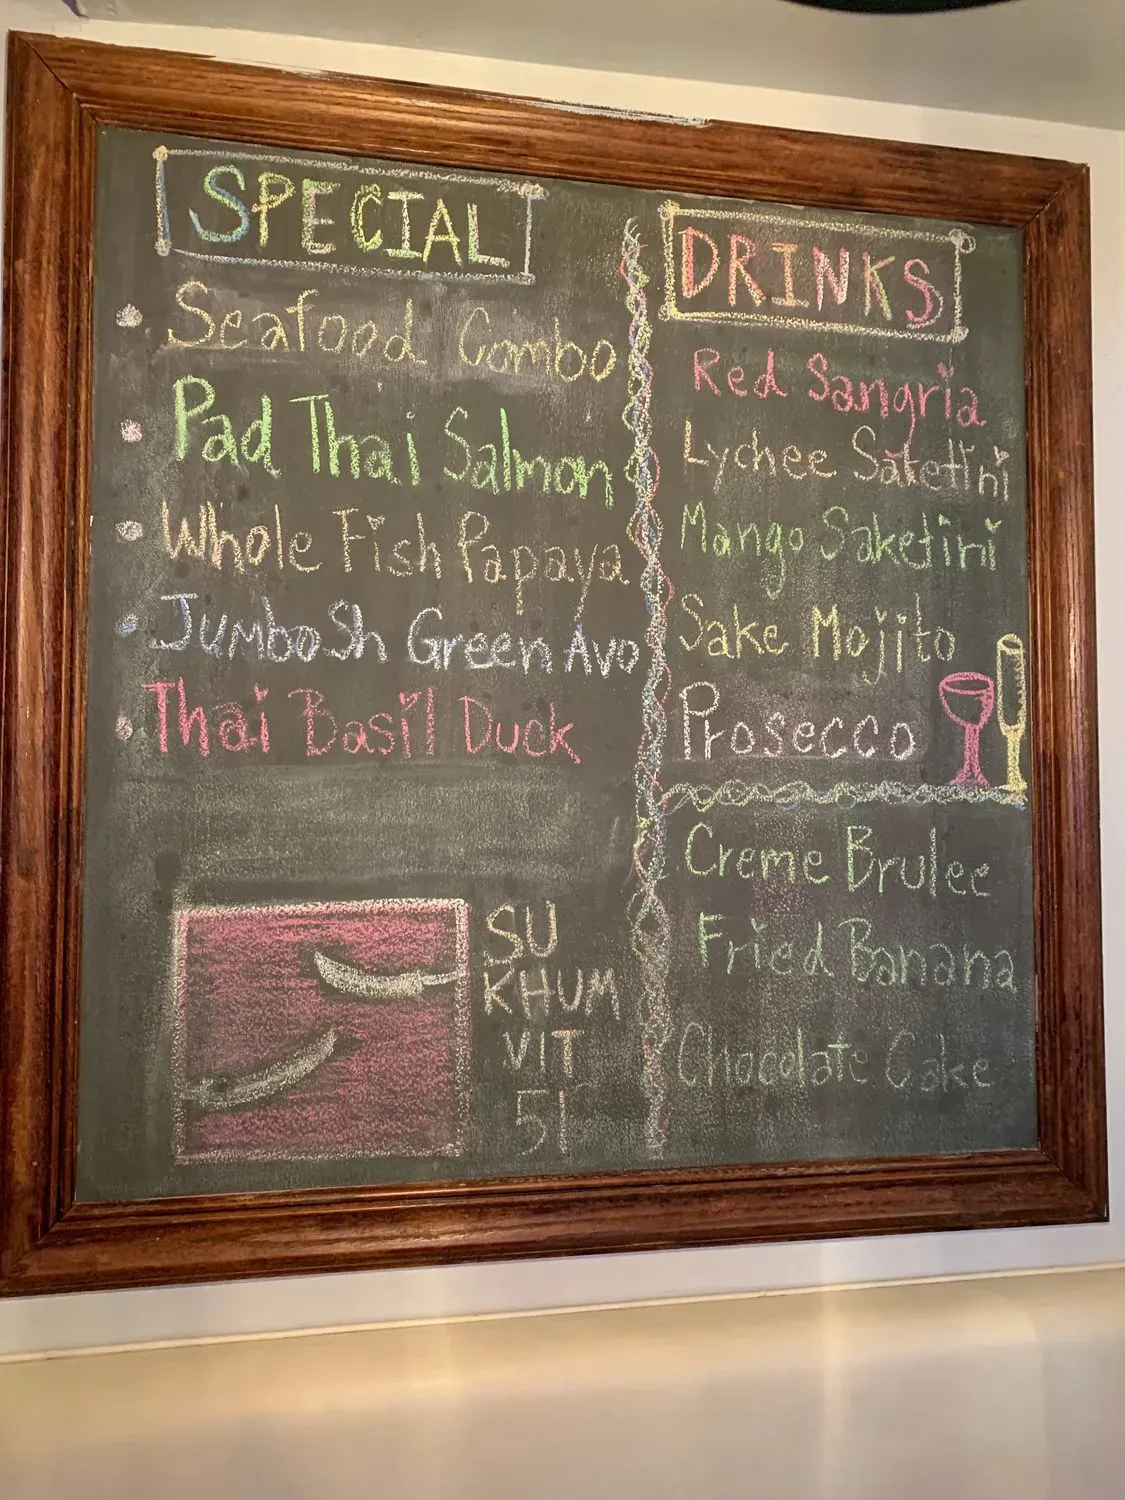 SPECIAL
Seafood Combo
Pad Thai Salmon
Whole Fish Papaya
Jumbo Sh Green Avo
Thai Basil Duck
SU
KHUM
VIT
51
DRINKS
Red Sangria
Lychee Saketini
Mango Saketini
Sake Mojito
Prosecco
Creme Brulee
Fried Banana
Chocolate Cake